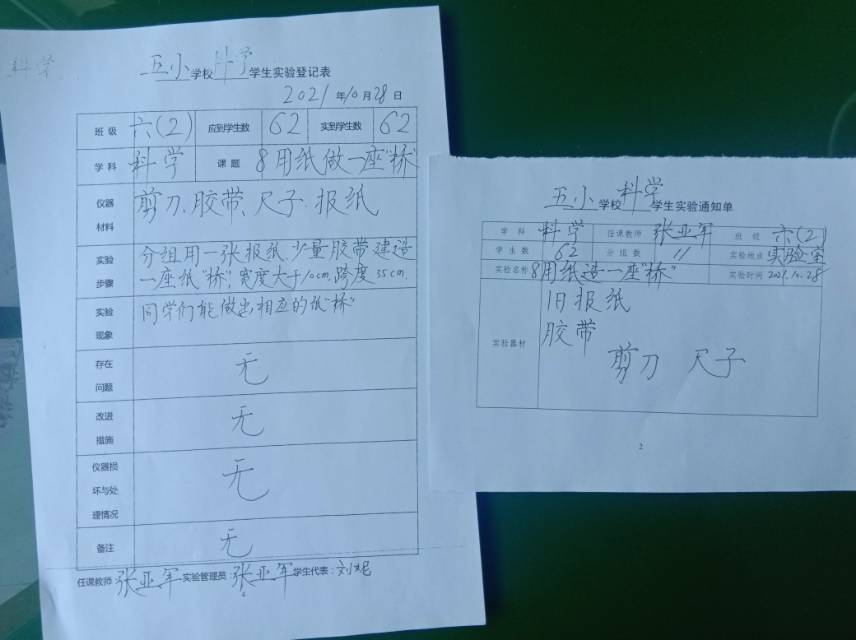 科学
五小学校科学学生实验登记表
2021年10月28日
班级 六(2) 应到学生数 62 实到学生数 62
学科 科学 课题 8用纸做一座"桥"
仪器材料 剪刀、胶带、尺子、报纸
实验步骤 分组用一张报纸、少量胶带建造
一座纸"桥",宽度大于10cm,跨度35cm.
实验现象 同学们能做出相应的纸"桥"
存在问题 无
改进措施 无
仪器损坏与处理情况 无
备注 无
任课教师:张亚军 实验管理员:张亚军 学生代表:刘妮
五小学校科学学生实验通知单
学科 科学 任课教师 张亚军 班级 六(2)
学生数 62 分组数 11 实验地点 实验室
实验名称 8用纸造一座"桥" 实验时间 2021.10.28
实验器材
旧报纸
胶带
剪刀 尺子
2